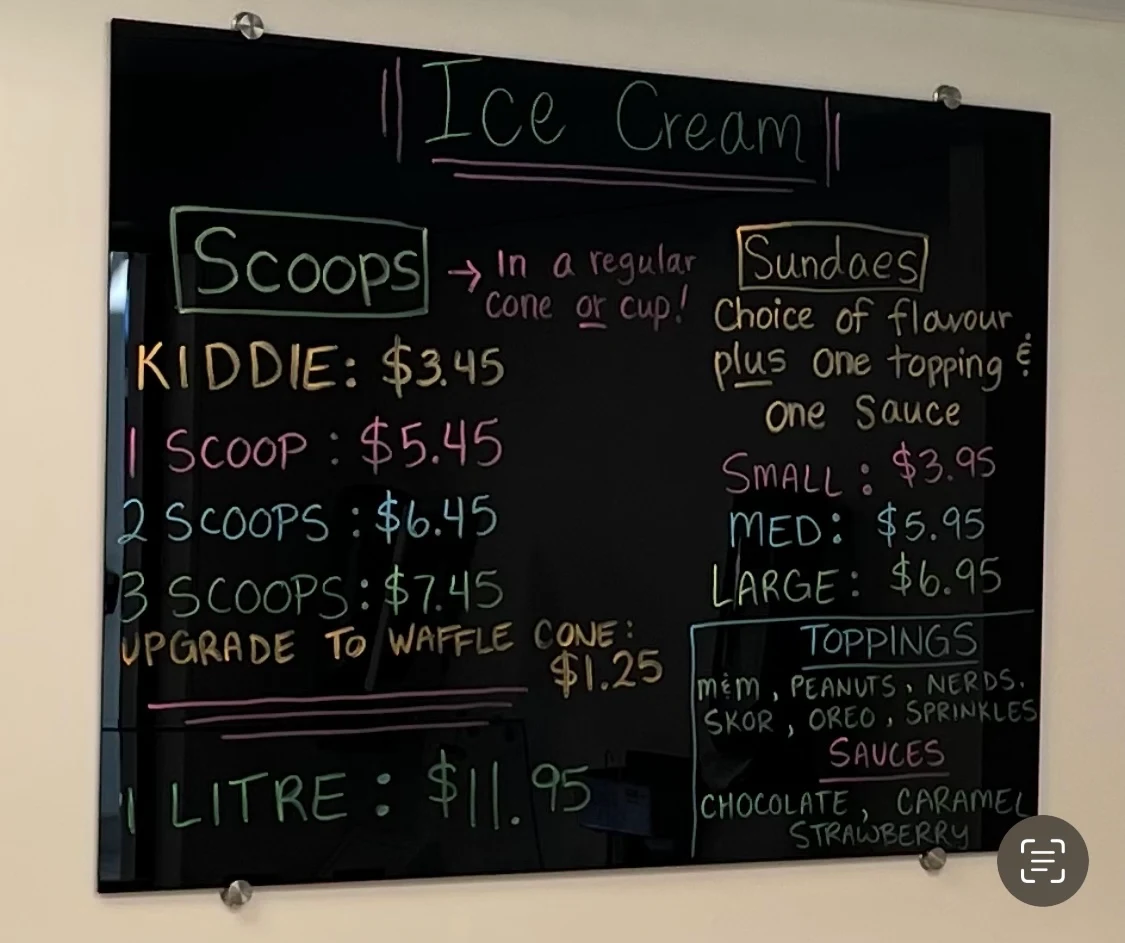 Ice Cream
Scoops
→ In a regular
cone or cup!
KIDDIE: $3.45
1 SCOOP: $5.45
2 SCOOPS: $6.45
3 SCOOPS: $7.45
UPGRADE TO WAFFLE CONE:
$1.25
1 LITRE: $11.95
Sundaes
Choice of flavour
plus one topping &
one Sauce
SMALL: $3.95
MED: $5.95
LARGE: $6.95
TOPPINGS
m&m, PEANUTS, NERDS.
SKOR, OREO, SPRINKLES
SAUCES
CHOCOLATE, CARAMEL
STRAWBERRY